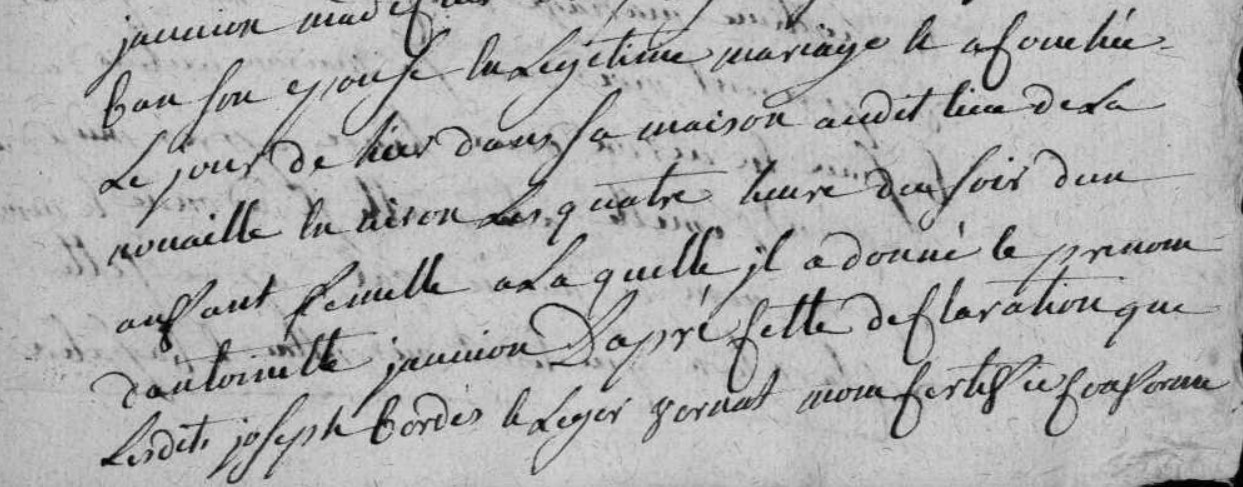 jannion
ban son epouse en Legitime mariage et a Couchée
Le jour de hier dans sa maison audit lieu de La
nouaille en viron Les quatre heure du soir dun
anfant femelle a La quelle jl a donné le prenom
dantoinette jannion Dapré Cette deClaration que
Lesdits joseph bordes et Leger mont Certifié Conforme